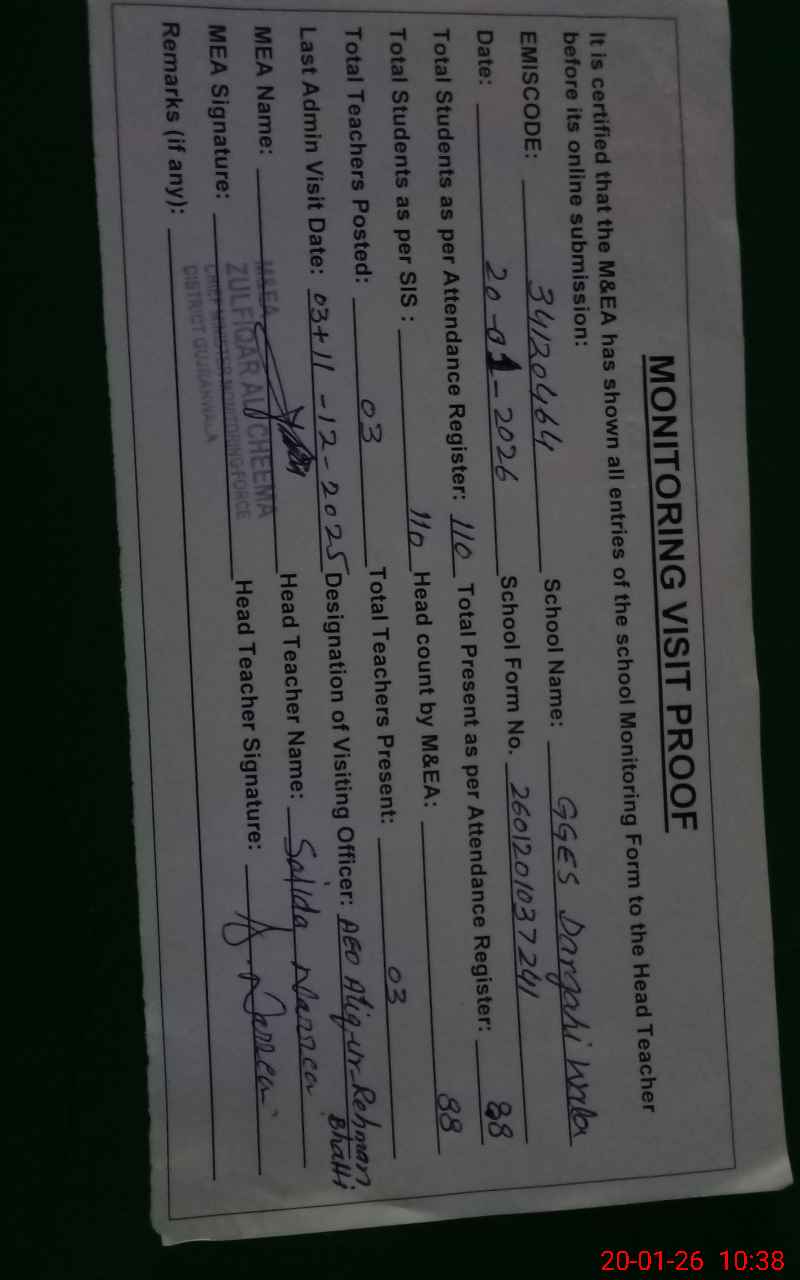 MONITORING VISIT PROOF
It is certified that the M&EA has shown all entries of the school Monitoring Form to the Head Teacher
before its online submission:
EMISCODE: 34120464 School Name: GGES Dargahi Wala
Date: 20-01-2026 School Form No. 2601201037241
Total Students as per Attendance Register: 110 Total Present as per Attendance Register: 88
Total Students as per SIS : 110 Head count by M&EA: 88
Total Teachers Posted: 03 Total Teachers Present: 03
Last Admin Visit Date: 03+11-12-2025 Designation of Visiting Officer: AEO Atiq-ur-Rehman Bhatti
MEA Name: Head Teacher Name: Sajida Nasreen
MEA Signature: Head Teacher Signature: Nasreen
Remarks (if any):
M&EA
ZULFIQAR ALI CHEEMA
CHIEF MINISTER MONITORING FORCE
DISTRICT GUJRANWALA
20-01-26 10:38